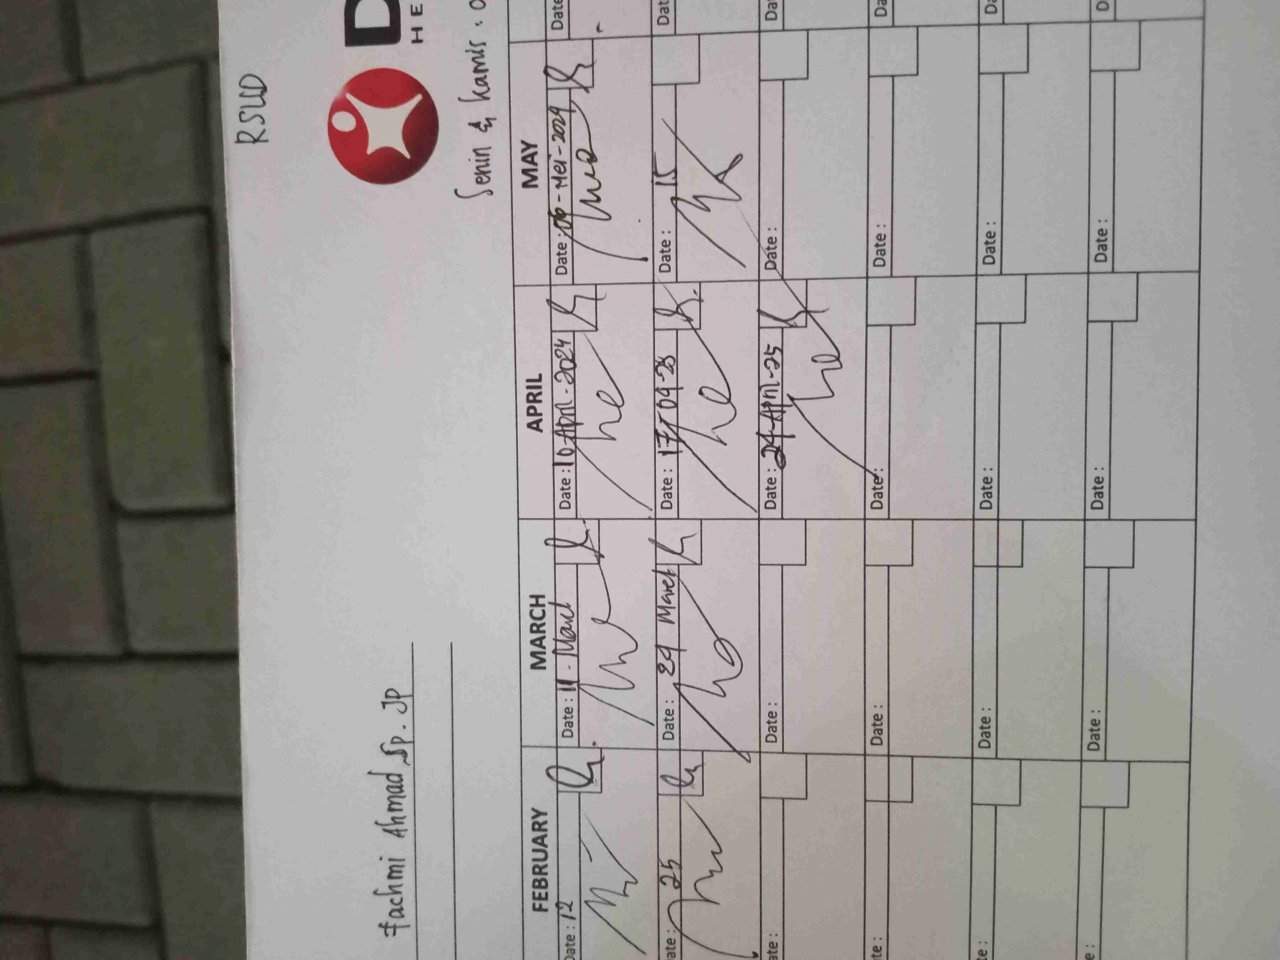 RSUD
D
HE
Fachmi Ahmad, Sp. JP
Senin & Kamis : 0
FEBRUARY MARCH APRIL MAY
Date : 12 Date : 11 - Maret Date : 10 April - 2024 Date : 06 - Mei - 2024 Date
ate : 25 Date : 24 Maret Date : 17 - 04 - 25 Date : 15 Dat
ate : Date : Date : 24 - April - 25 Date : Da
te : Date : Date : Date : Da
te : Date : Date : Date : Da
te : Date : Date : Date : D